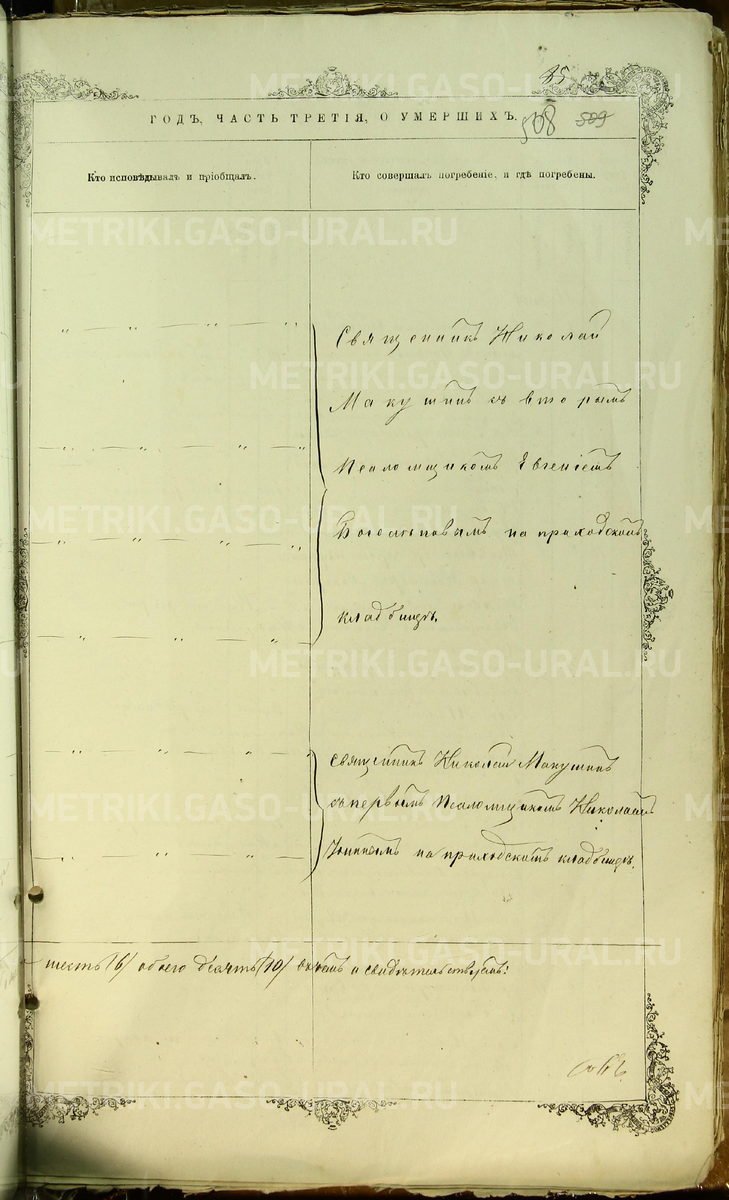 85
ГОДЪ, ЧАСТЬ ТРЕТІЯ, О УМЕРШИХЪ.
508 509
Кто исповѣдывалъ и пріобщалъ.
Кто совершалъ погребеніе, и гдѣ погребены.
METRIKI.GASO-URAL.RU
Священникъ Николай
Макушинъ съ вторымъ
Псаломщикомъ Евгеніемъ
на приходскомъ
кладбищѣ.
Священникъ Николай Макушинъ
съ первымъ Псаломщикомъ Николаемъ
на приходскомъ кладбищѣ.
шесть /6/ обоего десять /10/ и свидѣтельствуемъ: